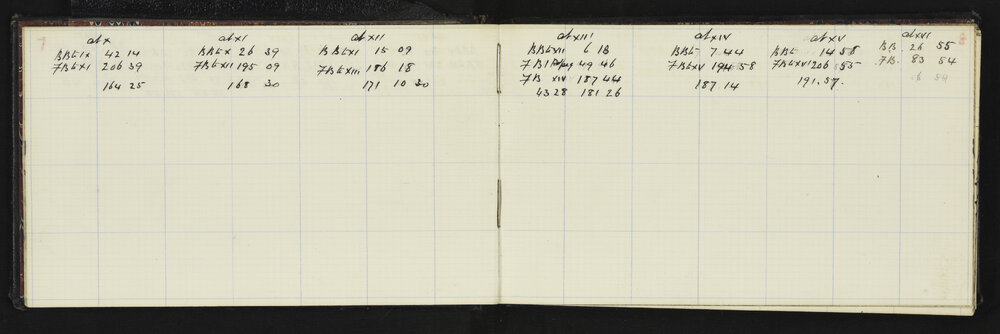 at X
BB to IX 42 14
FB to XI 206 39
164 25
at XI
BB to X 26 39
FB to XII 195 09
168 30
at XII
BB to XI 15 09
FB to XIII 186 18
171 10 30
at XIII
BB to XII 6 18
FB 49 46
FB XIV 187 44
43 28 181 26
at XIV
BB to 7.44
FB to XV 194 58
187 14
at XV
BB to 14 58
FB to XVI 206 55
191.57.
at XVI
BB. 26 55
FB. 83 54